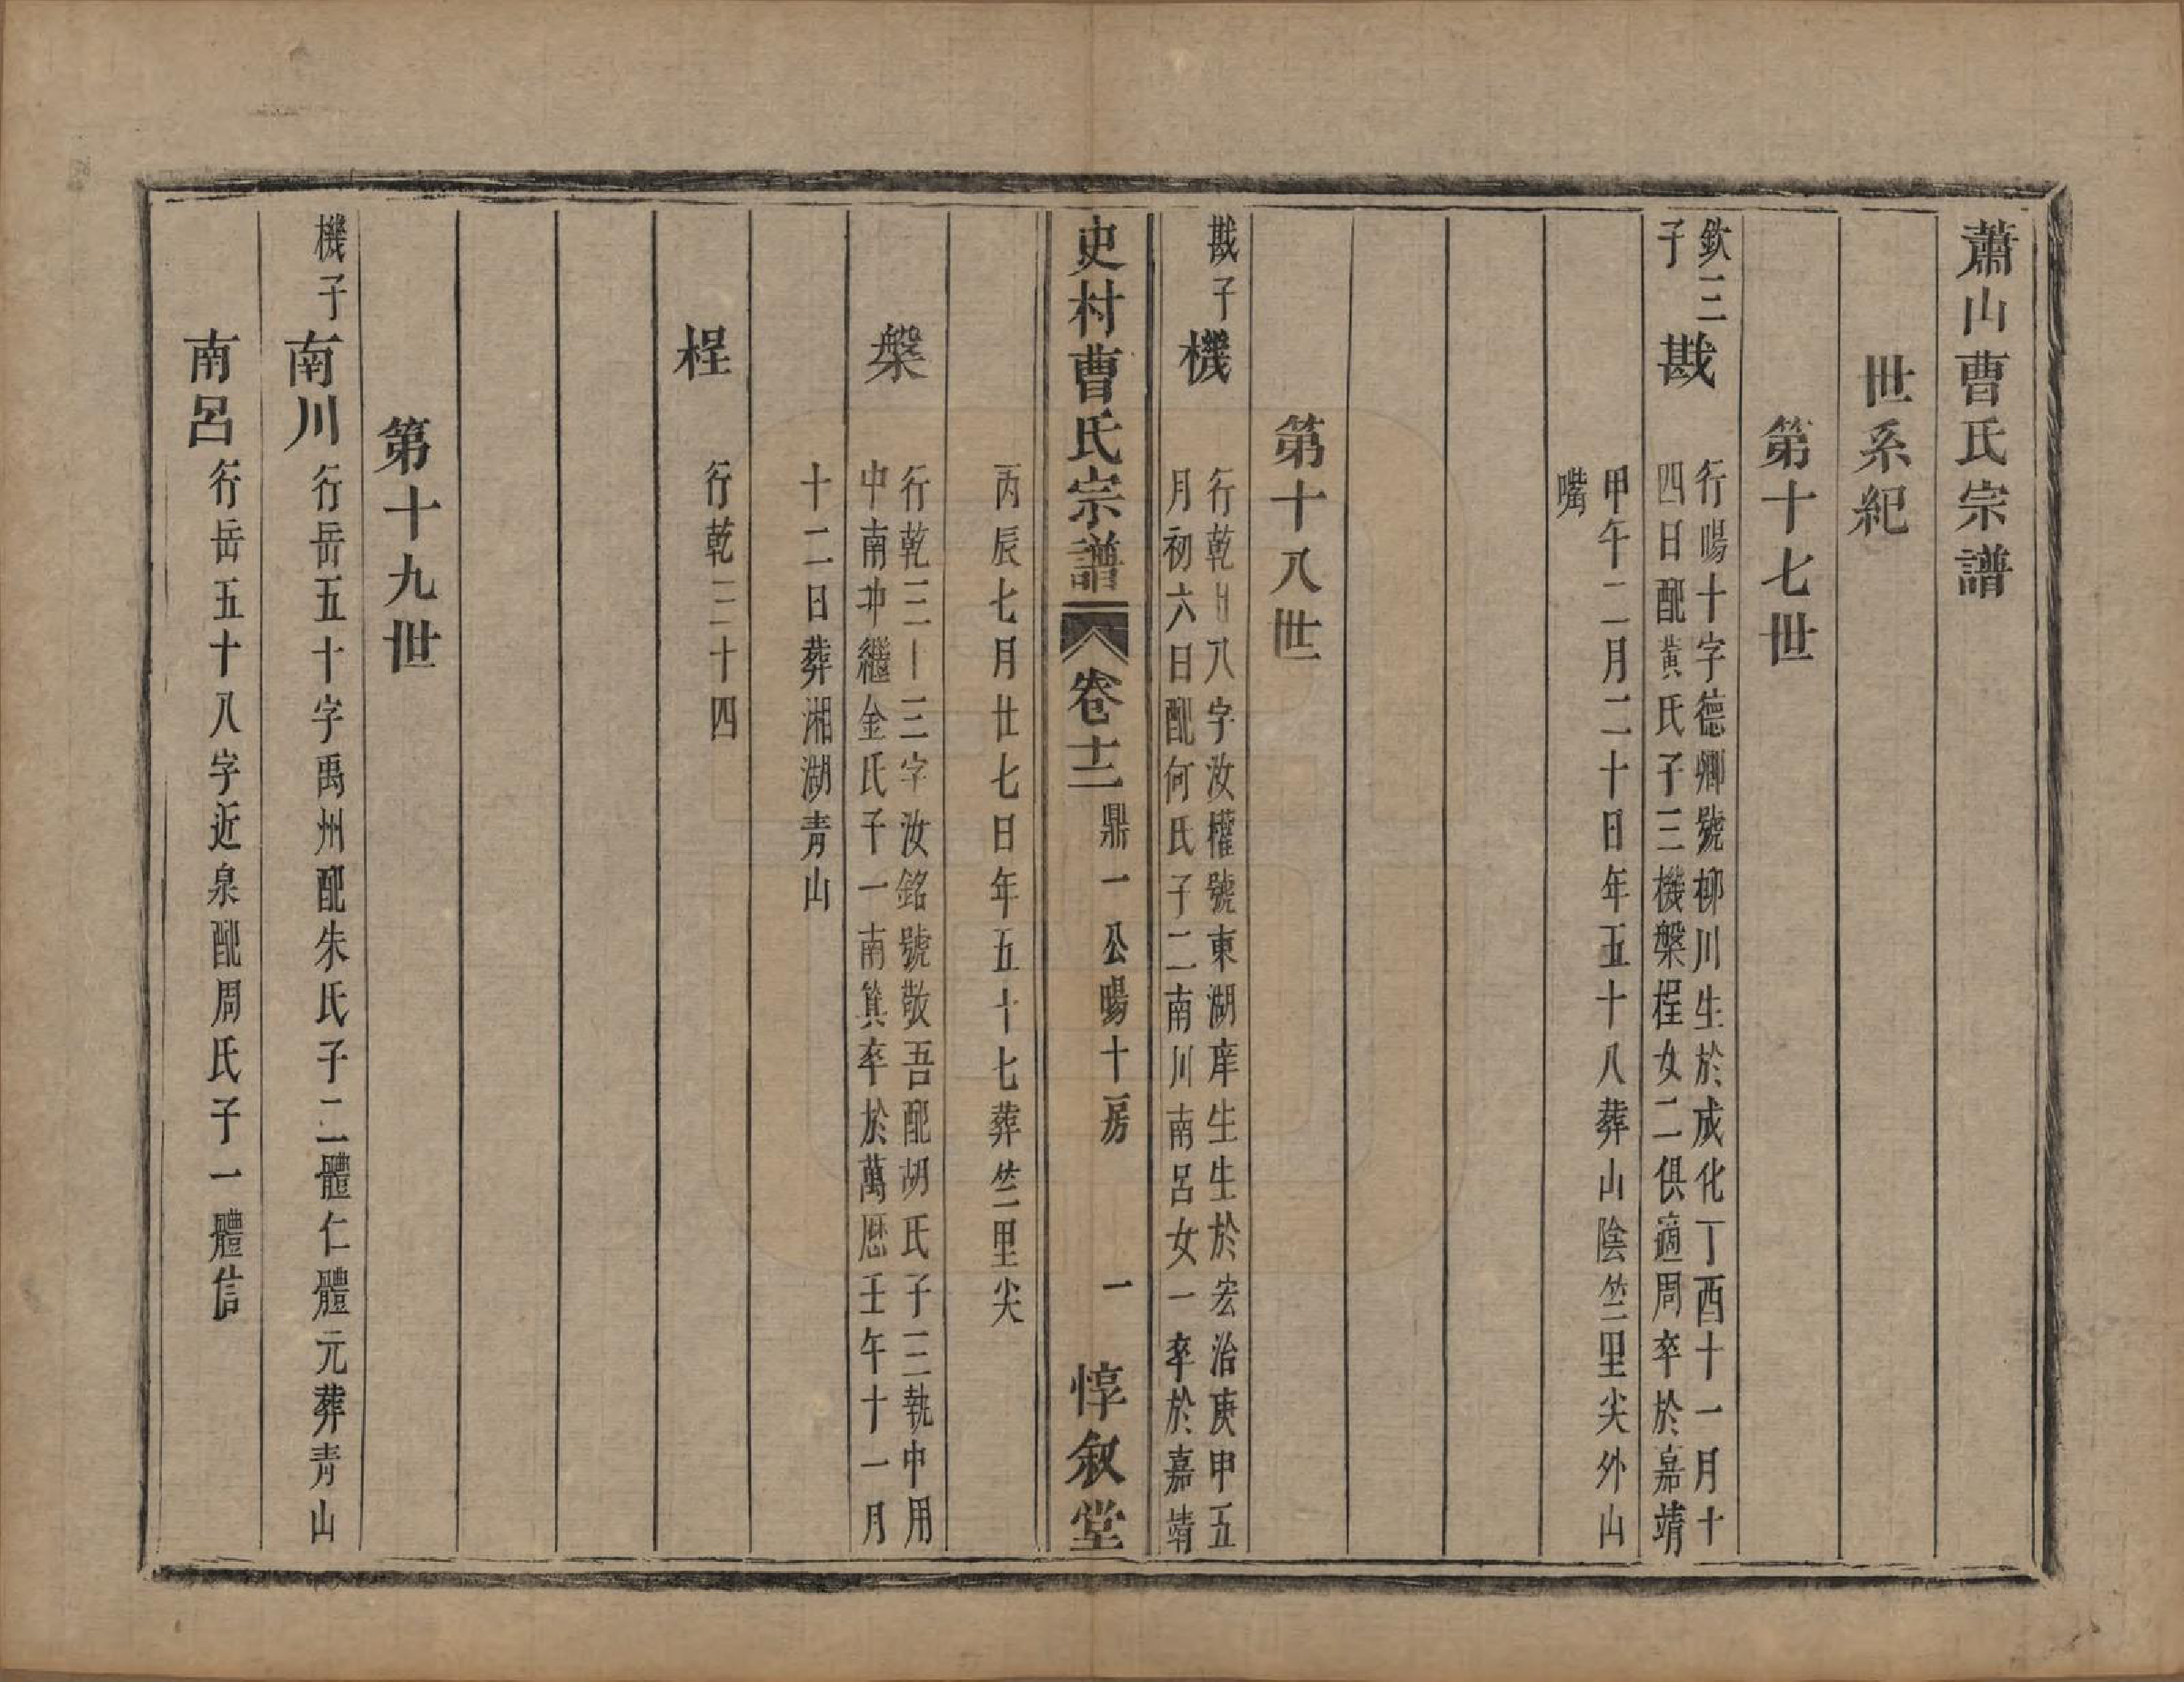 蕭山曹氏宗譜
世系紀
第十七世
欽三子
戡
行暘十字德卿號柳川生於成化丁酉十一月十
四日配黃氏子三機槃桯女二俱適周卒於嘉靖
甲午二月二十日年五十八葬山陰竺里尖外山
嘴
第十八世
戡子
機
行乾廿八字汝權號東湖庠生生於宏治庚申五
月初六日配何氏子二南川南呂女一卒於嘉靖
史村曹氏宗譜
卷十二
鼎一公暘十房
一
惇叙堂
丙辰七月廿七日年五十七葬竺里尖
槃
行乾三十三字汝銘號敬吾配胡氏子三執中用
中南冲繼金氏子一南箕卒於萬厯壬午十一月
十二日葬湘湖青山
桯
行乾三十四
第十九世
機子
南川
行岳五十字禹州配朱氏子二體仁體元葬青山
南呂
行岳五十八字近泉配周氏子一體信